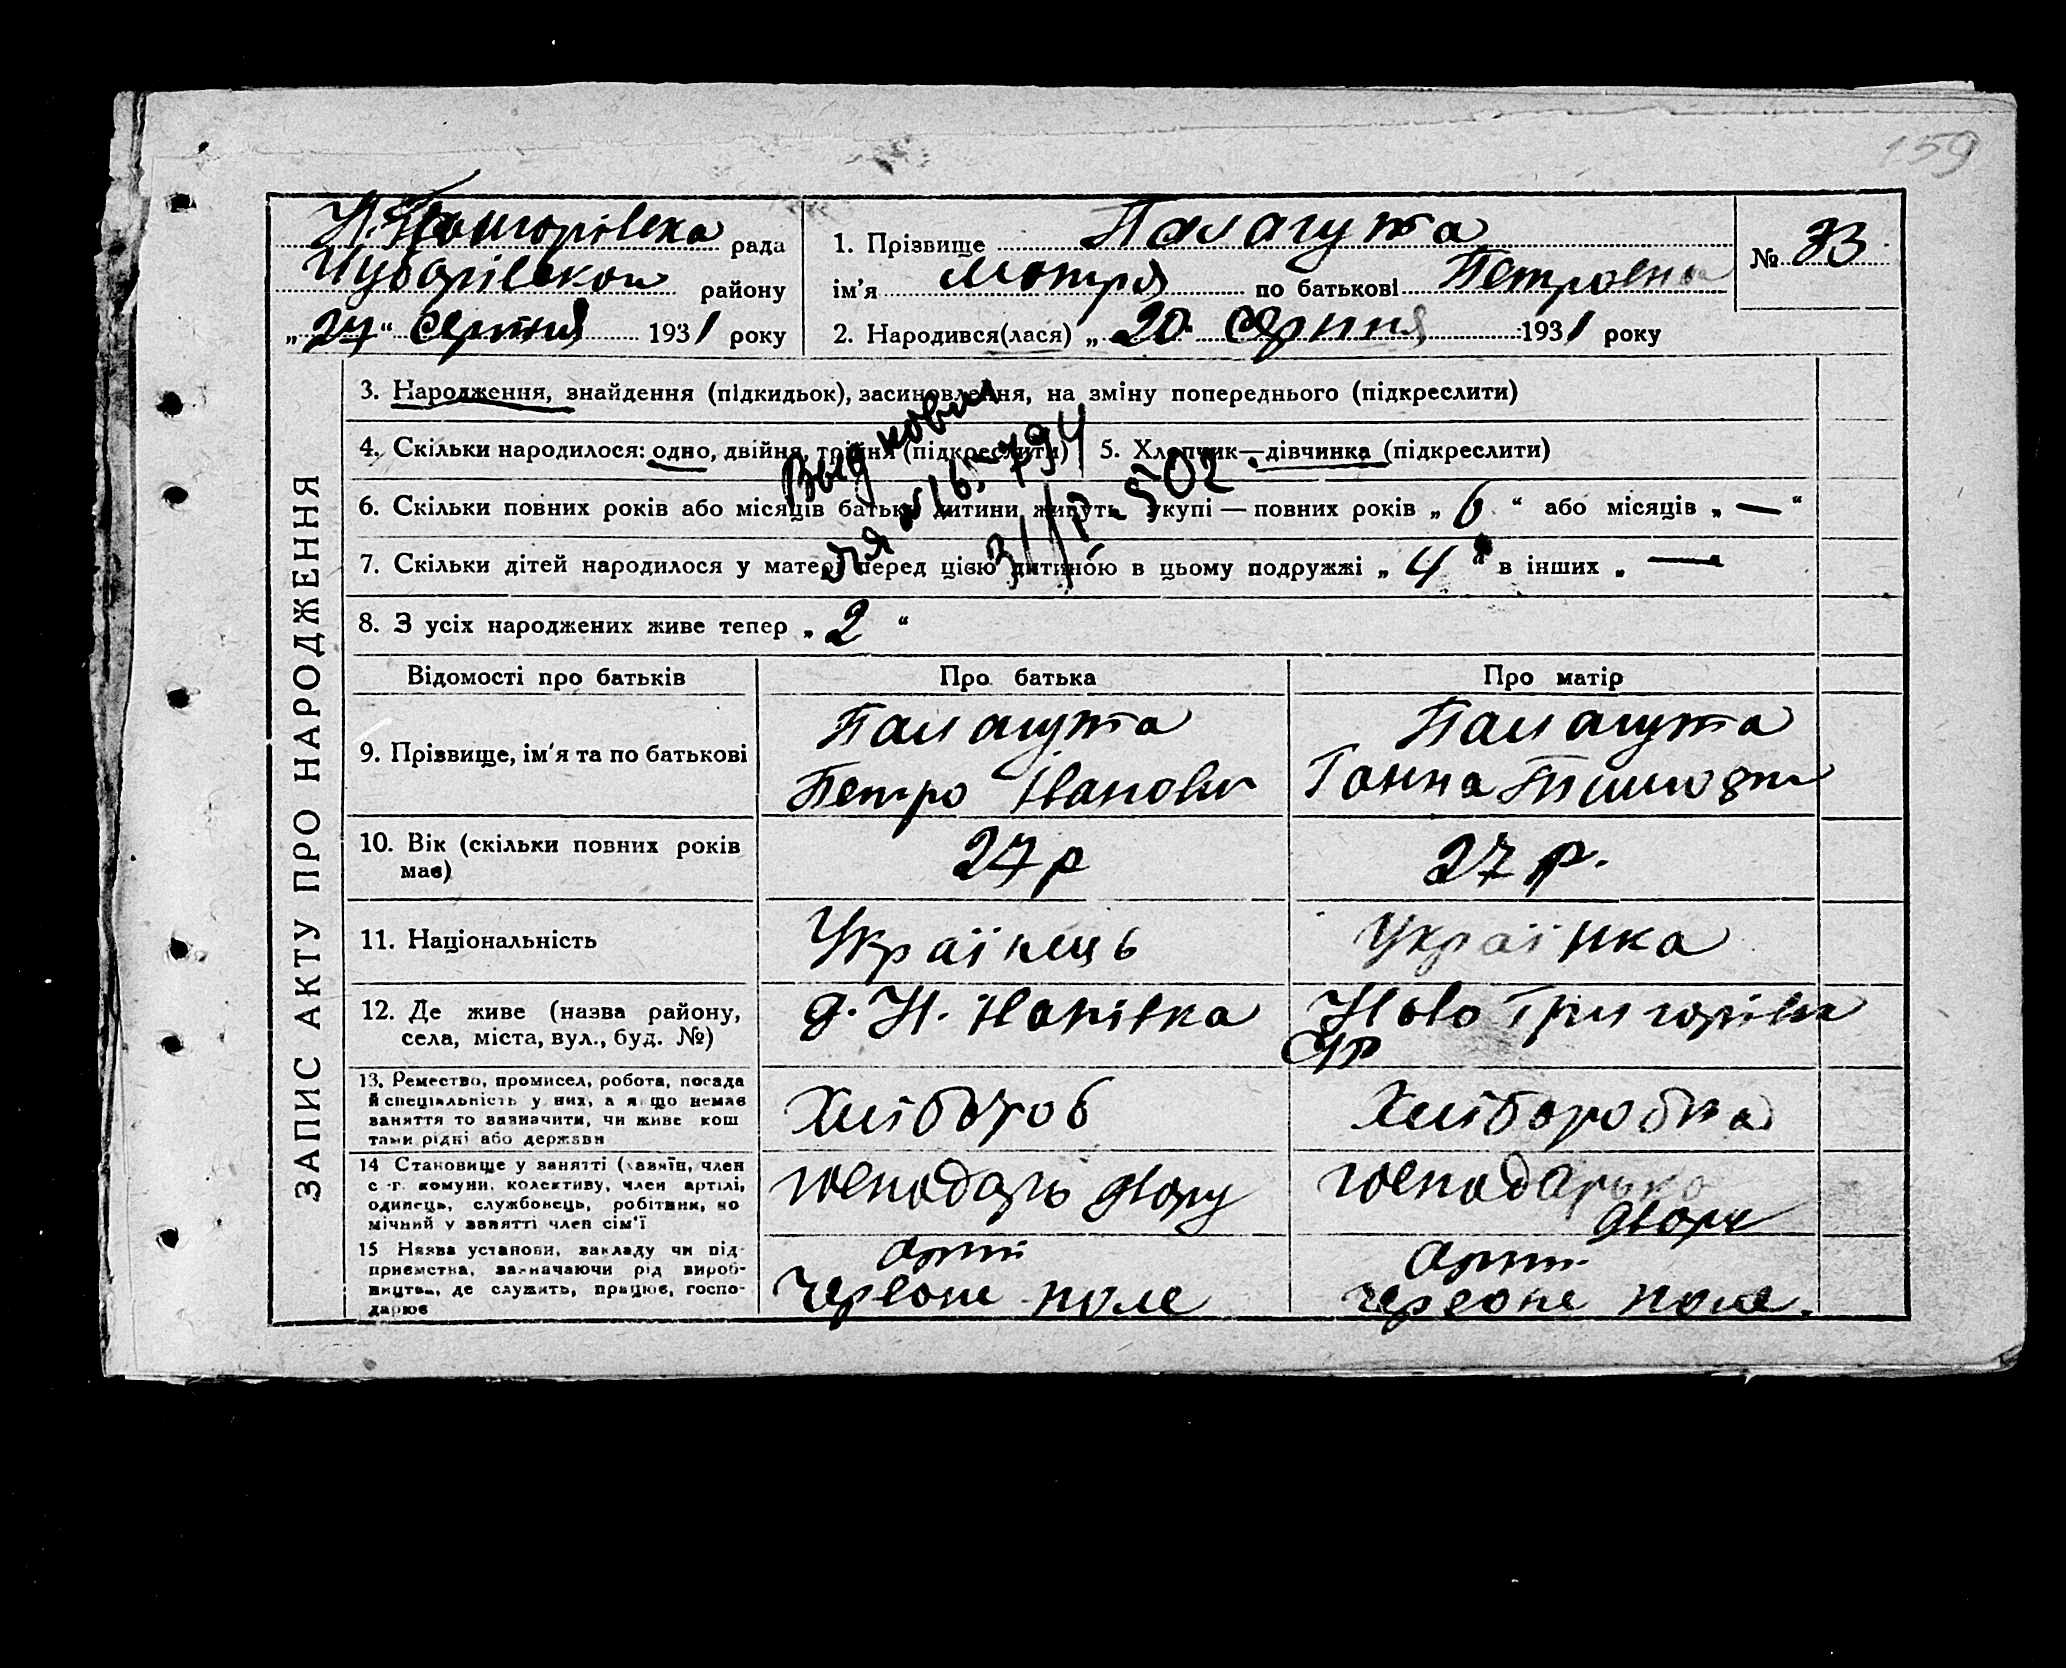 159
Н. Григорівска рада
Чубарівской району
„ 27 “ серпня 1931 року
1. Прізвище Палагута
ім’я Мотря по батькові Петровна
2. Народився(лася) „ 20 серпня 1931 року
№ 33
ЗАПИС АКТУ ПРО НАРОДЖЕННЯ
3. Народження, знайдення (підкидьок), засиновлення, на зміну попереднього (підкреслити)
4. Скільки народилося: одно, двійня, трійня (підкреслити)
5. Хлопчик—дівчинка (підкреслити)
6. Скільки повних років або місяців батьки дитини живуть укупі — повних років „ 6 “ або місяців „ — “
7. Скільки дітей народилося у матері перед цією дитиною в цьому подружжі „ 4 “ в інших „ —
8. З усіх народжених живе тепер „ 2 “
Відомості про батьків
Про батька
Про матір
9. Прізвище, ім’я та по батькові
Палагута
Петро Іванович
Палагута
Ганна
10. Вік (скільки повних років
має)
27 р
27 р.
11. Національність
Українець
Українка
12. Де живе (назва району,
села, міста, вул., буд. №)
д. Н. Іванівка
Ново Григорівка
13. Ремество, промисел, робота, посада
й спеціяльність у них, а якщо немає
заняття то зазначити, чи живе кош
тами рідні або держави
Хлібороб
Хліборобка
14 Становище у занятті (хазяїн, член
с.-г. комуни, колективу, член артілі,
одинець, службовець, робітник, по
мічний у занятті член сім’ї
господарь двору
господарька
двору
15 Назва установи, закладу чи під-
приємства, зазначаючи рід вироб-
ництва, де служить, працює, госпо-
дарює
арт
Червоне поле
арт.
червоне поле.